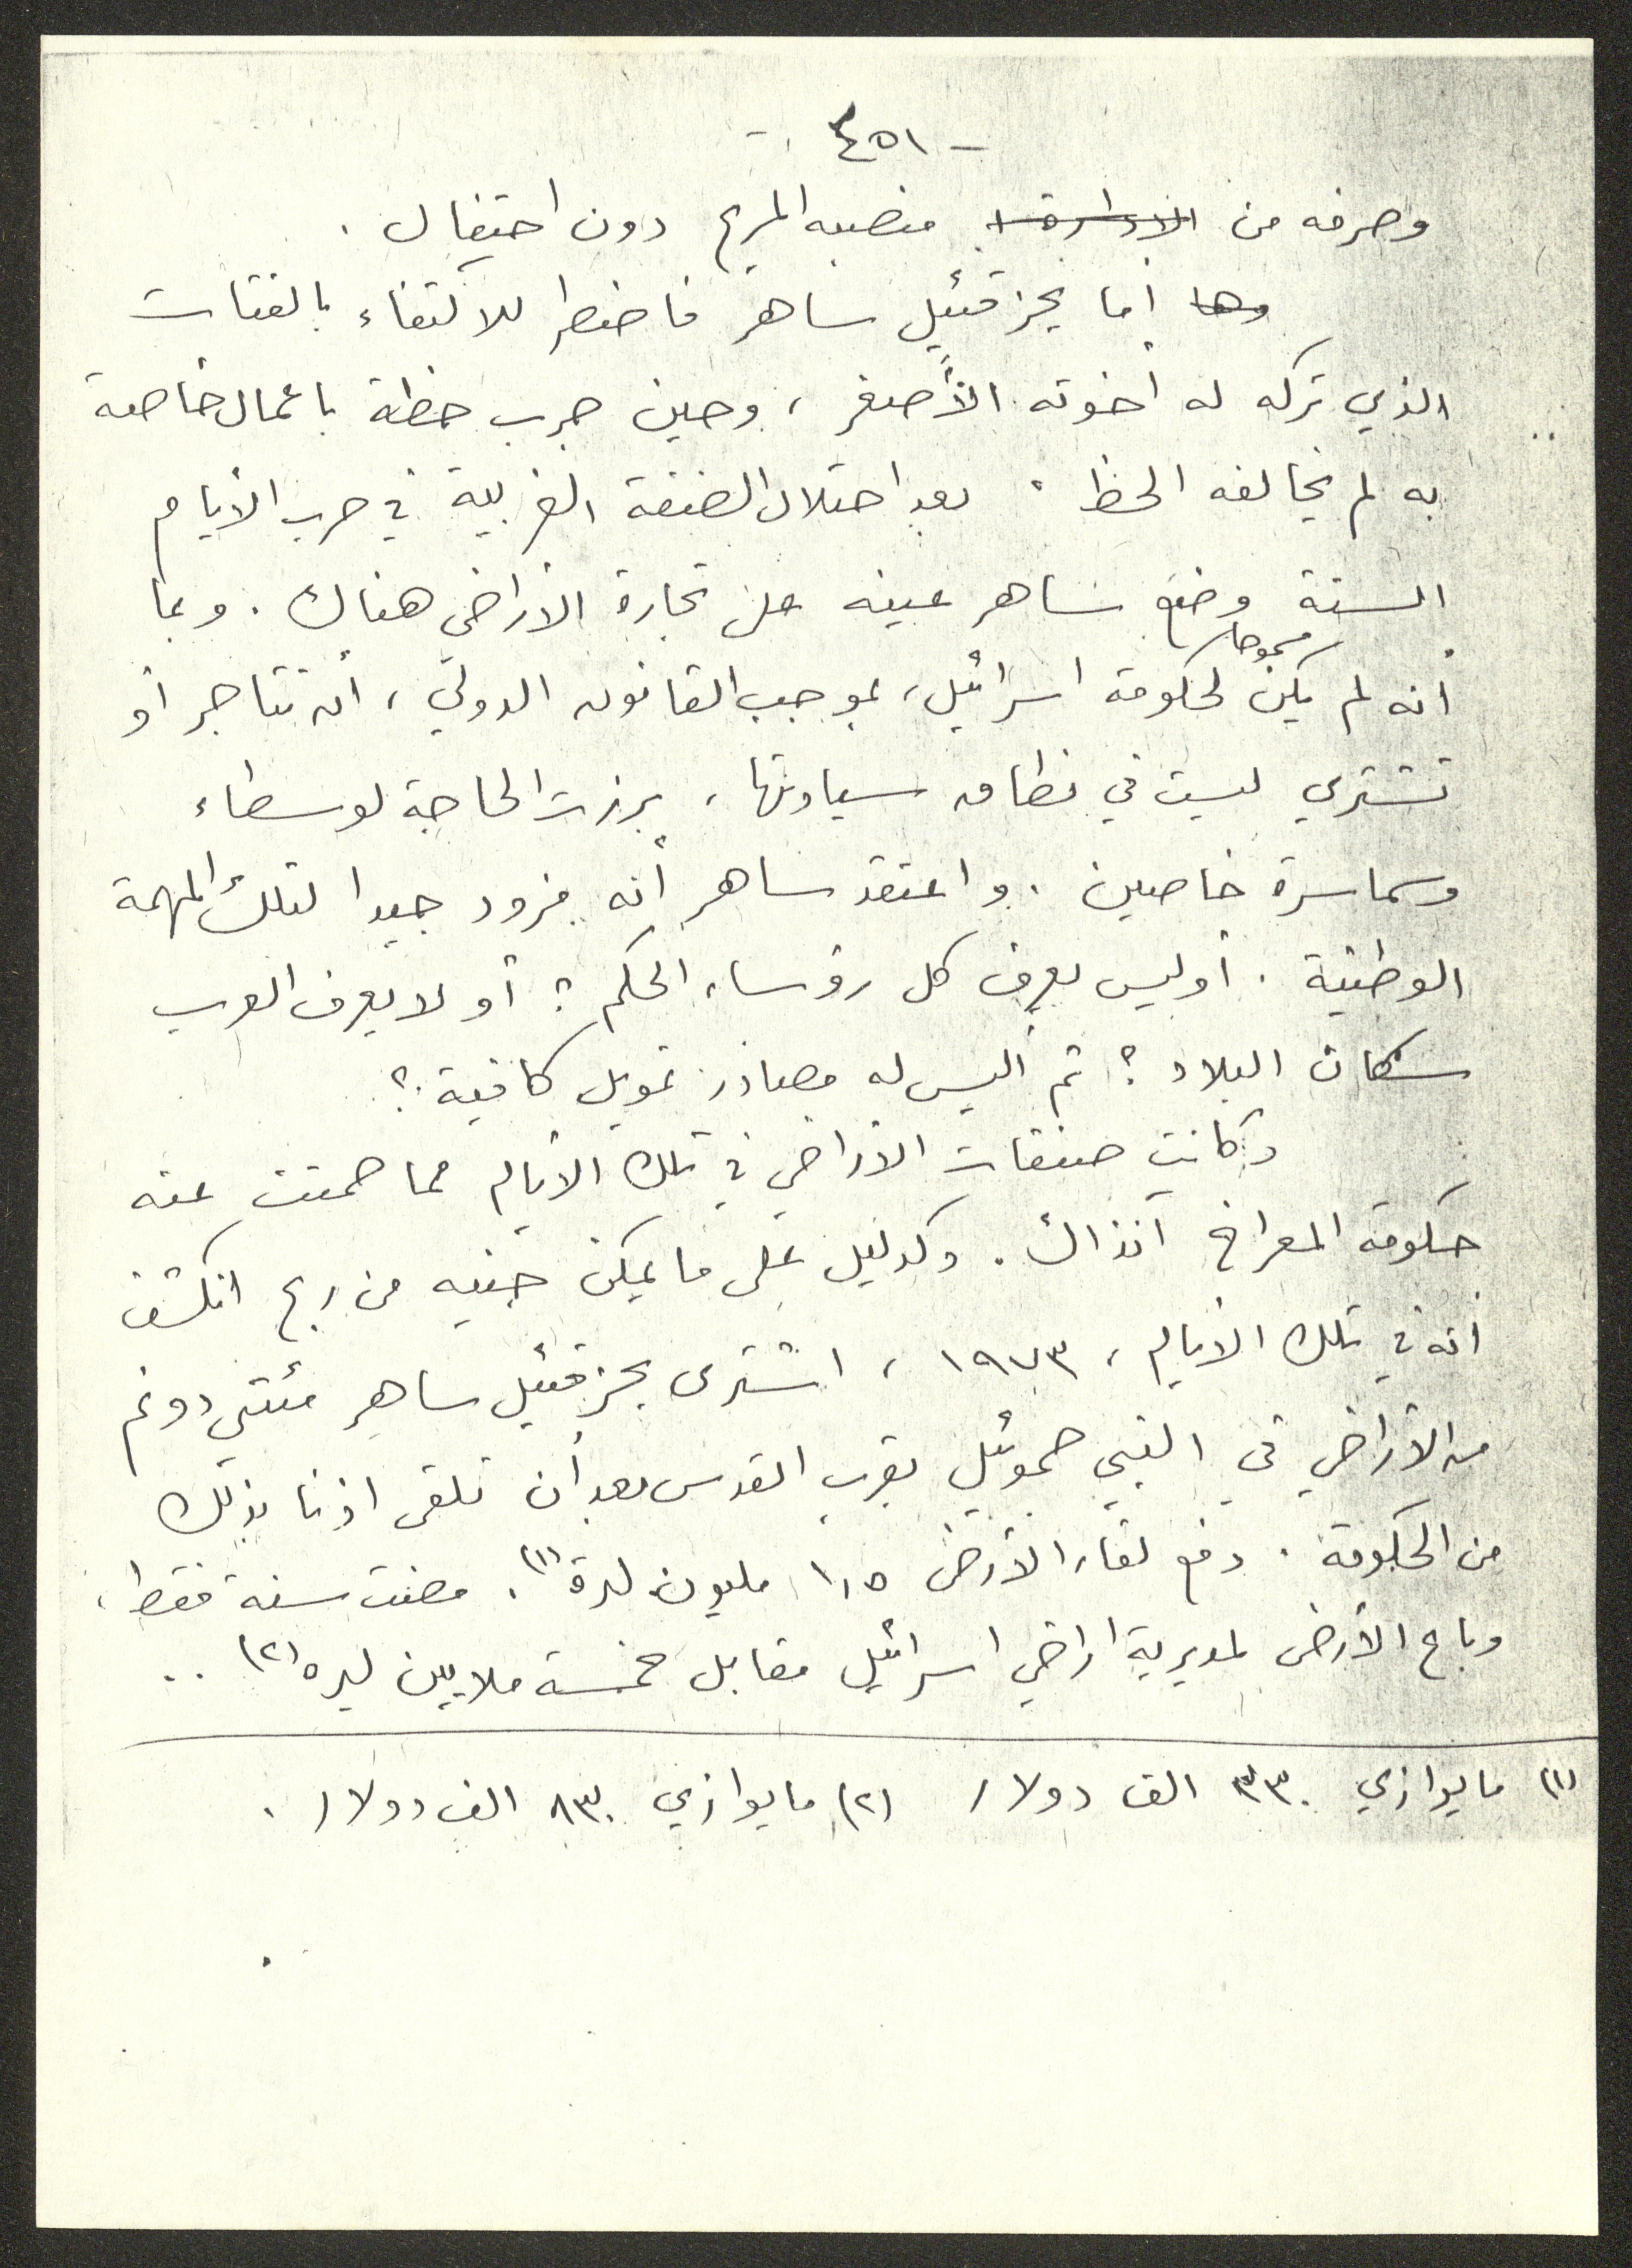 - ٤٥١ -
وصرفه من الادارة منصبه المريح دون احتفال .
وها أما يحزقئيل ساهر فاضطر للاكتفاء بالفتات
الذي تركه له أخوته الأصغر ، وحين جرب حظة باعمال خاصة
به لم يخالفه الحظ . بعد احتلال الضفة الغربية في حرب الأيام
الستة وضع ساهر عينه على تجارة الأراضي هناك . وبما
أنه لم يكن مسموحا لحكومة اسرائيل ، بموجب القانون الدولي ، أن تتاجر أو
تشتري ليست في نطاق سيادتها ، برزت الحاجة لوسطاء
وسماسرة خاصين . واعتقد ساهر أنه مزود جيدا لتلك المهمة
الوطنية . أوليس يعرف كل رؤساء الحكم ؟ أو لا يعرف العرب
سكان البلاد ؟ ثم أليس له مصادر تمويل كافية ؟
وكانت صفقات الأراضي في تلك الأيام مما صمتت عنه
حكومة المعراخ آنذاك . وكدليل على ما يمكن جنيه من ربح انكشف
أنه في تلك الأيام ، ١٩٧٣ ، اشترى يحزقئيل ساهر مئتي دونم
من الأراضي في النبي صموئيل بقرب القدس بعد أن تلقى اذنا بذلك
من الحكومة . دفع لقاء الأرض ١,٥ مليون ليرة (١) . مضت سنة فقط ،
وباع الأرض لمديرية اراضي اسرائيل مقابل خمسة ملايين ليره (٢) ..
(١) ما يوازي ٣٣٠ الف دولار (٢) ما يوازي ٨٣٠ الف دولار .